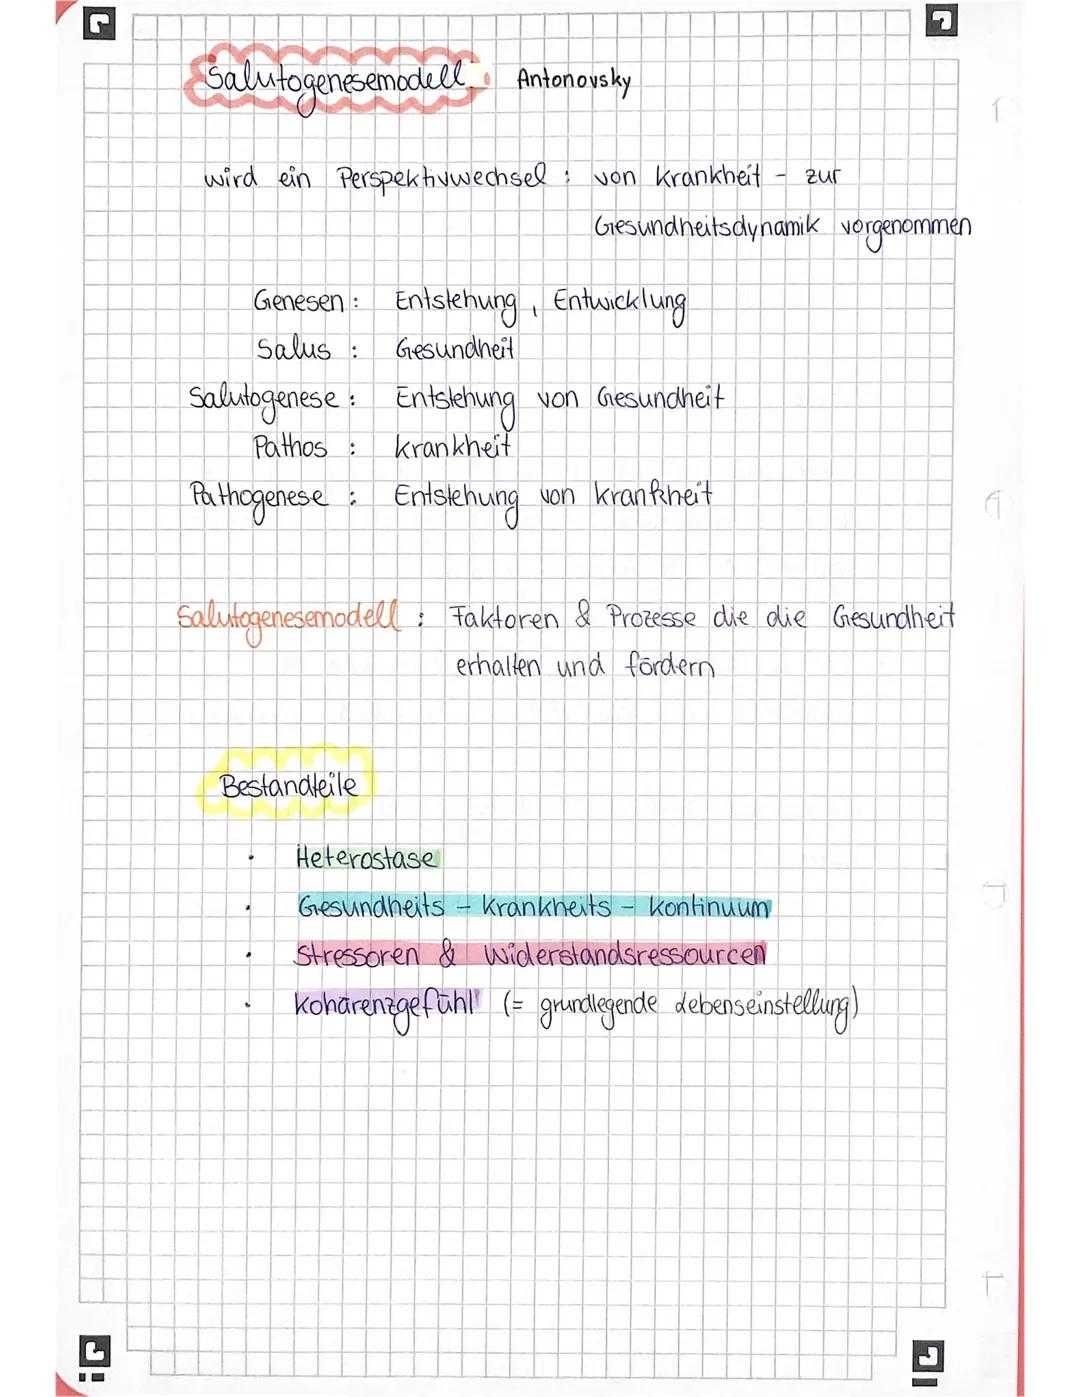 Salutogenesemodell: Antonovsky
wird ein Perspektivwechsel : von Krankheit - zur
Gesundheitsdynamik vorgenommen
Genesen : Entstehung, Entwicklung
Salus : Gesundheit
Salutogenese : Entstehung von Gesundheit
Pathos : Krankheit
Pathogenese : Entstehung von Krankheit
Salutogenesemodell : Faktoren & Prozesse die die Gesundheit
erhalten und fördern
Bestandteile
· Heterostase
· Gesundheits - Krankheits - Kontinuum
· Stressoren & Widerstandsressourcen
· Kohärenzgefühl (= grundlegende Lebenseinstellung)